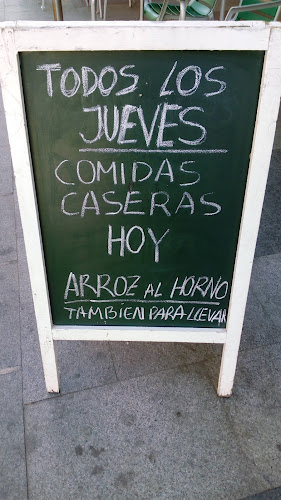 TODOS LOS
JUEVES
COMIDAS
CASERAS
HOY
ARROZ AL HORNO
TAMBIEN PARA LLEVAR